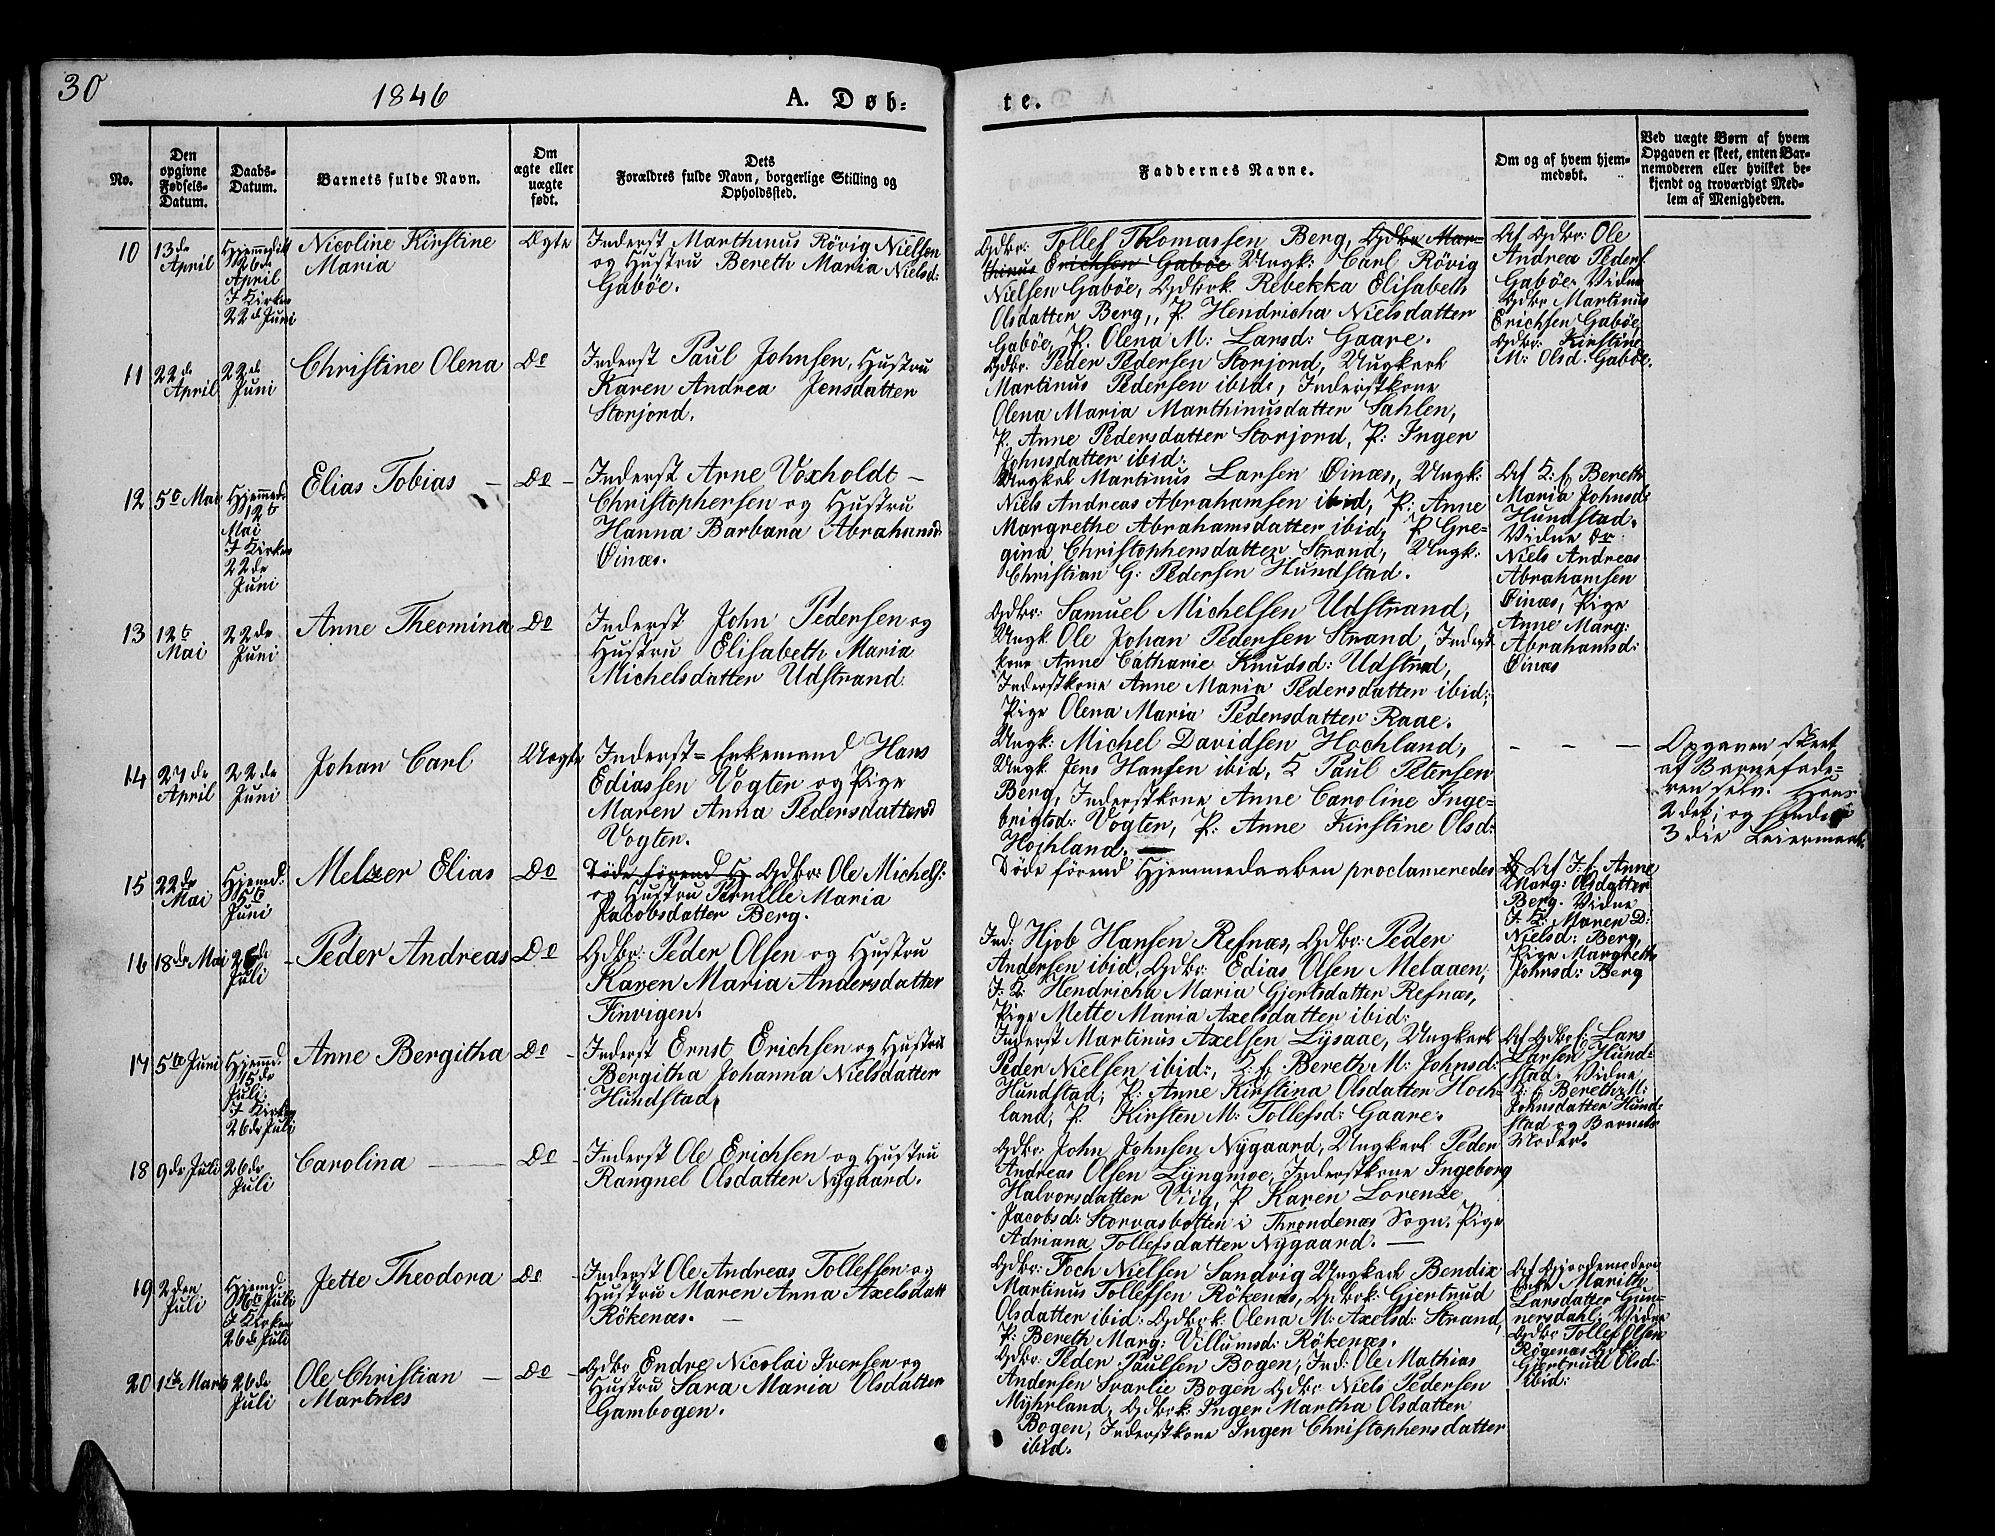 30
1846
A. Døb-
te.
No.
Den opgivne Fødsels-Datum.
Daabs-Datum.
Barnets fulde Navn.
Om ægte eller uægte født.
Dets Forældres fulde Navn, borgerlige Stilling og Opholdssted.
Faddernes Navne.
Om og af hvem hjemmedøbt.
Ved uægte Børn af hvem Opgaven er skeet, enten Barnemoderen eller hvilket bekjendt og troværdigt Medlem af Menigheden.
10
13de April
Hjemmedøbt
26de April
I Kirken
22de Juni
Nicoline Kirstine
Maria
Ægte
Inderst Marthinus Rövig Nielsen
og Hustru Bereth Maria Nielsd:
Gaböe.
Gdbr: Tollef Thomassen Berg, Gdbr Mar-
thinus Erichsen Gaböe Ungk: Carl Rövig
Nielsen Gaböe, Gdbrk. Rebekka Elisabeth
Olsdatter Berg, P. Hendricha Nielsdatter
Gaböe, P. Olena M: Larsd: Gaare.
Af Gdbr: Ole
Andrea Peders.
Gaböe. Vidne
Gdbr Martinus
Erichsen Gaböe,
Gdbr: Kirstine
M: Olsd. Gaböe.
11
22de April
22de Juni
Christine Olena
Do
Inderst Paul Johnsen, Hustru
Karen Andrea Jensdatter
Storjord.
Gdbr. Peder Pedersen Storjord, Ungkerl
Martinus Pedersen ibid:, Inderstkone
Olena Maria Marthinusdatter Sahlen,
P. Anne Pedersdatter Storjord, P: Inger
Johnsdatter ibid:
12
5te Mai
Hjemmed:
12te Mai
I Kirken
22de Juni
Elias Tobias –
Do –
Inderst Arne Voxholdt –
Christophersen og Hustru
Hanna Barbara Abrahamsd:
Öinæs.
Ungkerl Martinus Larsen Öinæs, Ungk:
Niels Andreas Abrahamsen ibid, P: Anne
Margrethe Abrahamsdatter ibid, P Gre-
gina Christophersdatter Strand, Ungk:
Christian G: Pedersen Hundstad.
Af K: f Bereth
Maria Johnsd:
Hundstad.
Vidne Dr
Niels Andreas
Abrahamsen
Öinæs, Pige
Anne Marg:
Abrahamsd:
Öinæs
13
12te Mai
22de Juni
Anne Theomina
Do
Inderst John Pedersen og
Hustru Elisabeth Maria
Michelsdatter Udstrand
Gdbr: Samuel Michelsen Udstrand,
Ungk Ole Johan Pedersen Strand, Inderst
kone Anne Catharie Knudsd: Udstrad,
Inderstkone Anne Maria Pedersdatter ibid:,
Pige Olena Maria Pedersdatter Raae.
14
27de April
22de Juni
Johan Carl
Uægte
Inderst=Enkemand Hans
Ediassen Vogter og Pige
Maren Anna Pedersdatter
Vogter.
Ungk: Michel Davidsen Hochland,
Ungk Jens Hansen ibid, K Paul Petersen
Berg, Inderstkone Anne Caroline Inge-
brigtsd: Vogter, P: Anne Kirstine Olsd:
Hochland.
– – –
Opgaven skeet
af Barnefade-
ren selv. Hans
2det; og hendes
3die Leiermaal.
15
22de Mai
Hjemd:
Juni
Melzer Elias
Do
Døde förend H Gdbr: Ole Michels:
og Hustru Pernille Maria
Jacobsdatter Berg.
Døde förend Hjemmedaaben proclameredes
Af I: f Anne
Marg: Olsdatter
Berg. Vidne
I. K: Maren D:
Nielsd: Berg,
Pige Margrethe
Johnsd: Berg
16
18de Mai
26de Juli
Peder Andreas
Do
Gdbr: Peder Olsen og Hustru
Karen Maria Andersdatter
Finvigen.
Ind: Hjob Hansen Refnæs, Gdbr: Peder
Andersen ibid, Gdbr: Edias Olsen Melaaen,
I. K: Hendricha Maria Gjertsdatter Refnæs,
Pige Mette Maria Axelsdatter ibid:
17
5te Juni
Hjemmd:
15de Juli
I Kirken
26de Juli
Anne Bergitha
Do –
Inderst Ernst Erichsen og Hustru
Bergitha Johanna Nielsdatter
Hundstad,
Inderst Martinus Axelsen Lysaae, Ungkerl
Peder Nielsen ibid:, K: f Bereth M: Johnsd:
Hundstad, P: Anne Kirstina Olsdatter Hoch-
land, P. Kirsten M: Tollefsd: Gaare.
Af Gdbr: Lars
Larsen Hund-
stad. Vidne
K: f: Bereth M:
Johnsdatter Hund-
stad og Barnets
Moder.
18
9de Juli
26de Juli
Carolina –
Do –
Inderst Ole Erichsen og Hustru
Rangnel Olsdatter Nygaard.
Gdbr: John Johnsen Nygaard, Ungkerl Peder
Andreas Olsen Lyngmoe, Inderstkone Ingeborg
Halvorsdatter Viig, P Karen Lorenze
Jacobsd: Storvasbotten i Throndenæs Sogn. Pige
Adriana Tollefsdatter Nygaard. –
19
2den Juli
Hjemd:
Juli
I Kirken
26de Juli
Jette Theodora
Do –
Inderst Ole Andreas Tollefsen og
Hustru Maren Anna Axelsdatt
Rökenæs. –
Gdbr: Foch Nielsen Sandvig Ungkerl Bendix
Martinus Tollefsen Rökenæs, Gdbrk: Gjertrud
Olsdatter ibid: Gdbrk: Olena M: Axelsd: Strand,
P: Bereth Marg: Villumsd: Rökenæs.
Af Gjordemoderi
Enke Marith
Larsdatter Gun-
nersdahl, Vidne
Gdbr Tollef Olsen
Røgenæs Gdk:
Gjertrud Olsd:
ibid:
20
1ste Marts
26de Juli
Ole Christian –
Martnes
Do –
Gdbr Endre Nicolai Iversen og
Hustru Sara Maria Olsdatter
Gambogen.
Gdbr: Peder Paulsen Bogen, Ind: Ole Mathias
Andersen Svarlie Bogen Gdbr Niels Pedersen
Myhrland, Gdbrk: Inger Martha Olsdatter
Bogen, Inderstkone Inger Christophersdatter
ibid.